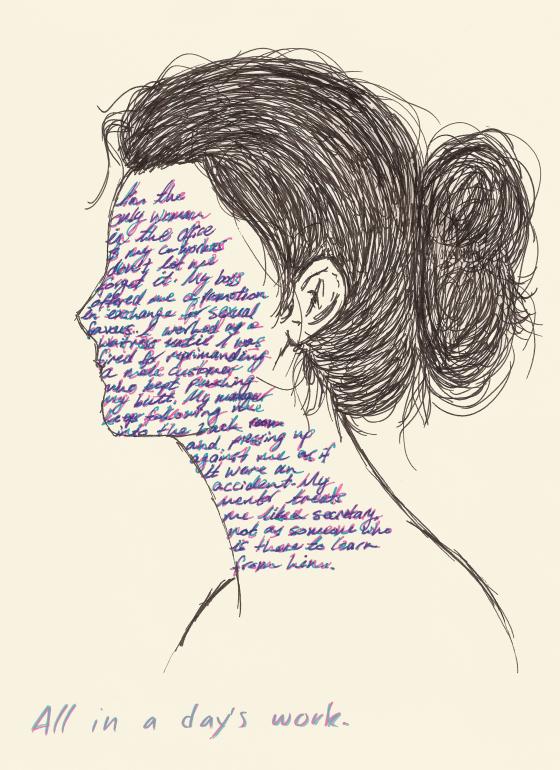 I'm the
only woman
in the office
& my co-workers
don't let me
forget it. My boss
offered me a promotion
in exchange for sexual
favors. I worked as a
waitress until I was
fired for reprimanding
a male customer
who kept pinching
my butt. My manager
keeps following me
into the back room
and, pressing up
against me as if
it were an
accident. My
mentor treats
me like a secretary,
not as someone who
is there to learn
from him.
All in a day's work.